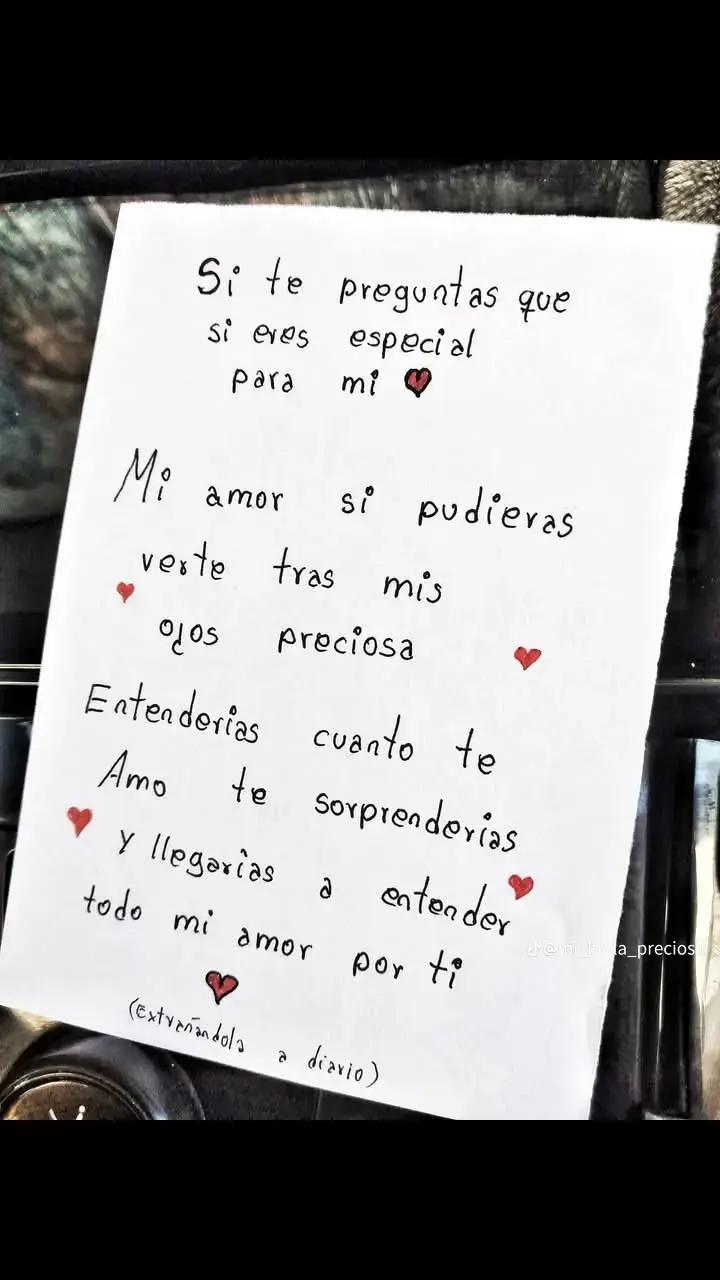 Si te preguntas que
si eres especial
para mi
Mi amor si pudieras
verte tras mis
ojos preciosa
Entenderias cuanto te
Amo te sorprenderias
y llegarias a entender
todo mi amor por ti
(Extrañandola a diario)